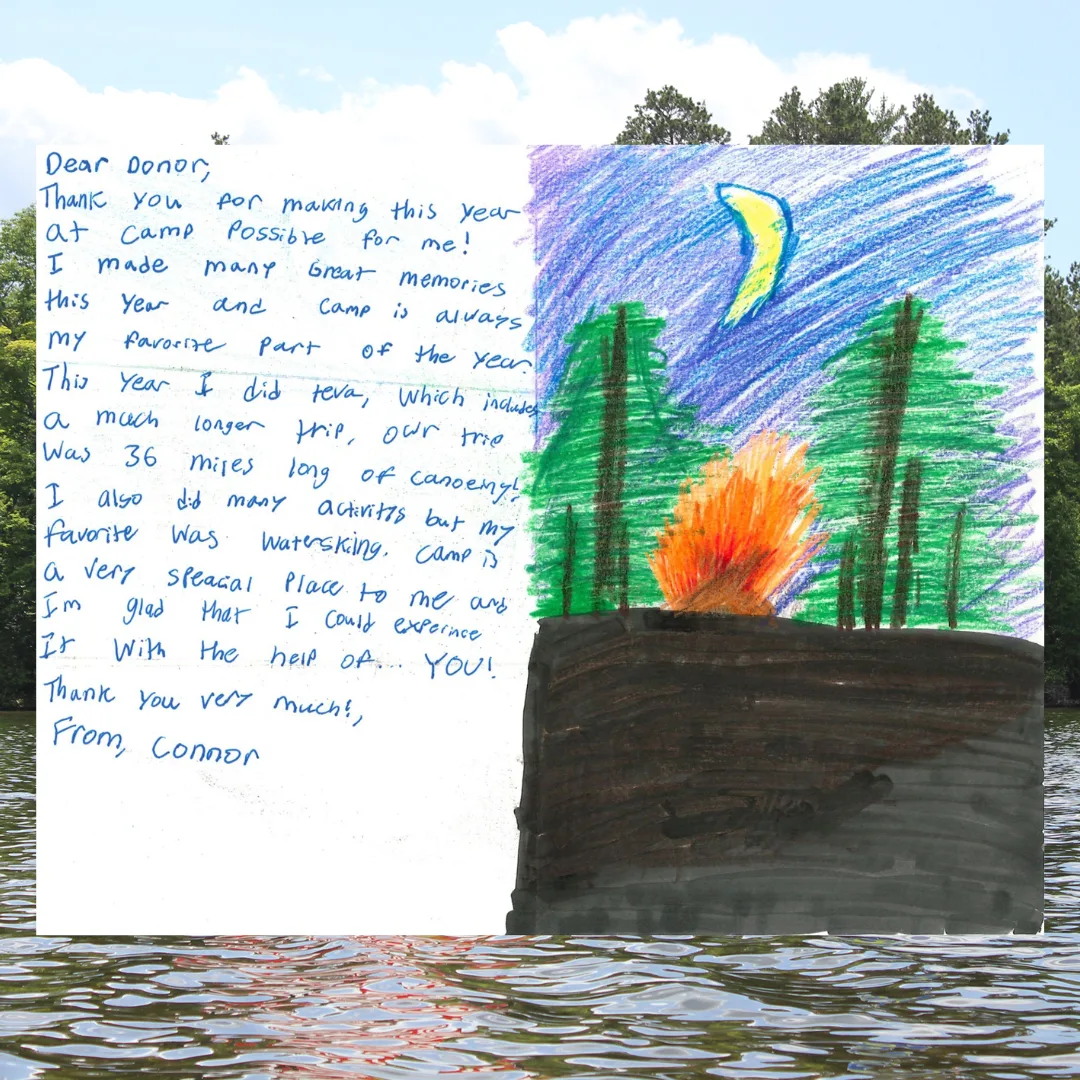 Dear Donor,
Thank you for making this year
at camp Possible for me!
I made many Great memories
this year and camp is always
my favorite part of the year
This year I did teva, which includes
a much longer trip, our trip
was 36 miles long of canoeing!
I also did many activitys but my
favorite was waterskiing. camp is
a very speacial place to me and
Im glad that I could experince
It with the help of... YOU!
Thank you very much!,
From, Connor